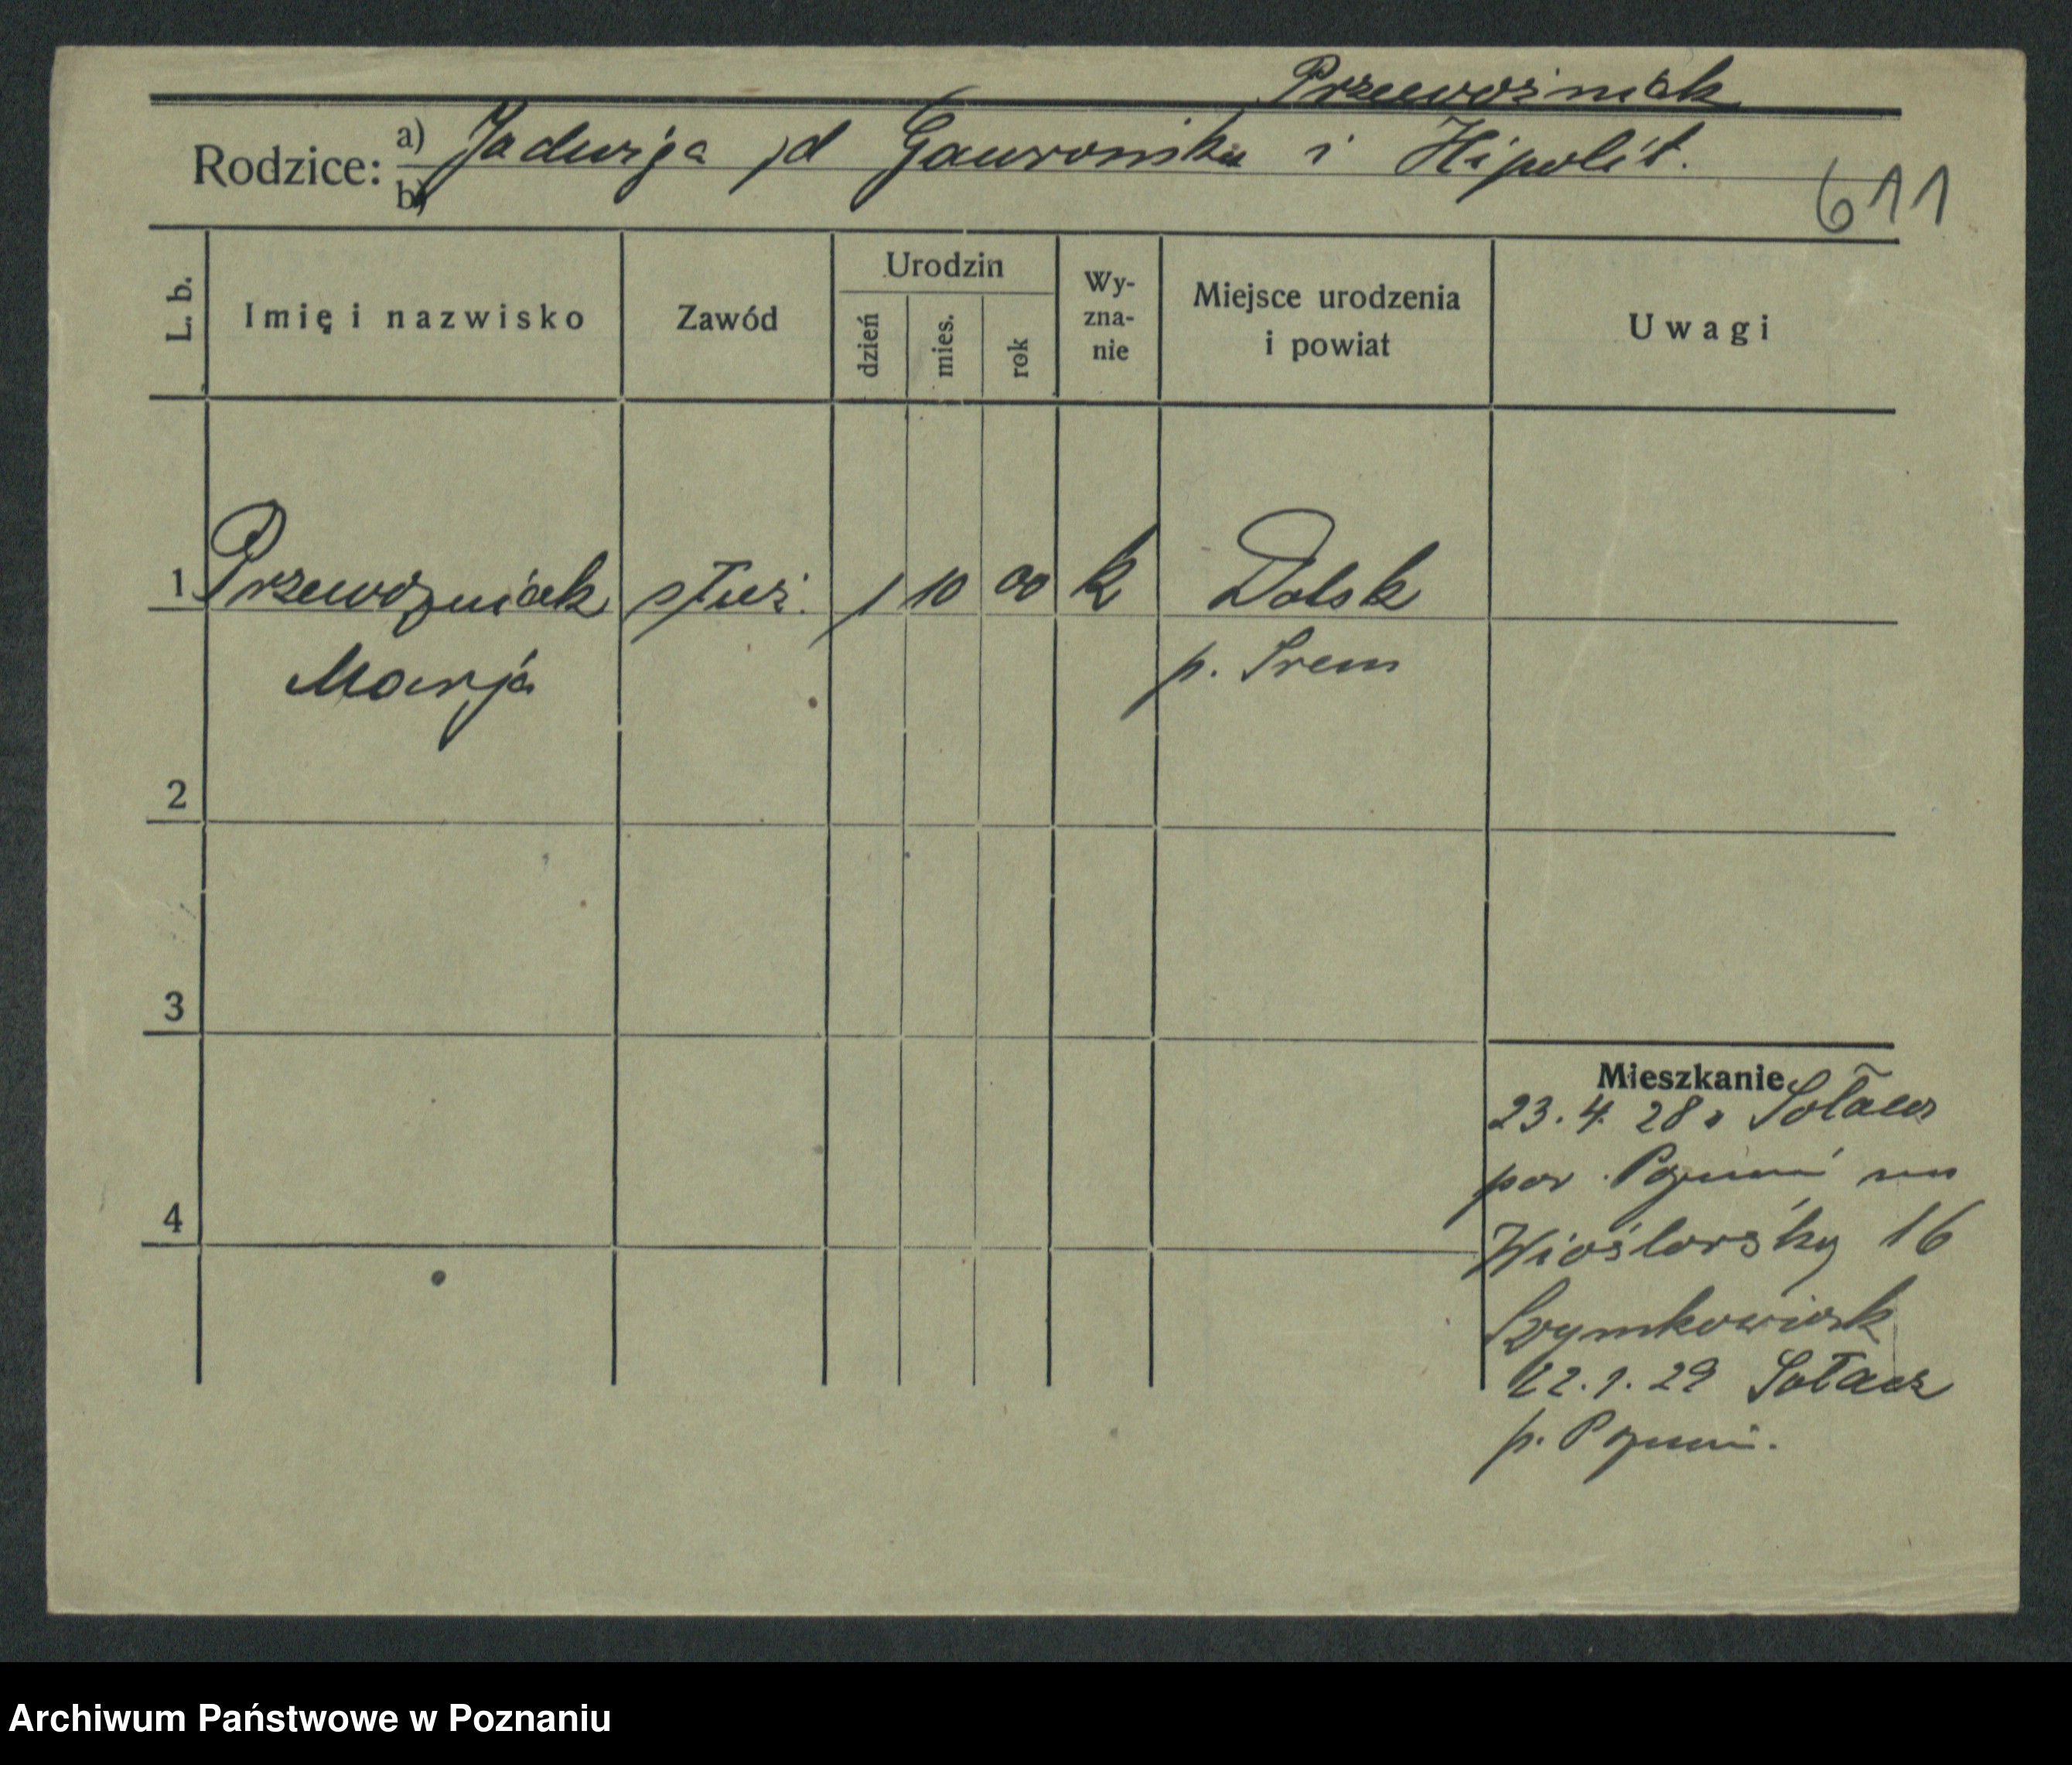 Przewoźniak
Rodzice: a) Jadwiga /d Gawronska i Hipolit.
b)
611
L. b. Imię i nazwisko Zawód Urodzin dzień mies. rok Wy-zna-nie Miejsce urodzenia i powiat Uwagi
1 Przewozniak służ. 1 10 00 k Dolsk
Marja p. Srem
2
3
Mieszkanie
23. 4. 28. Sołacz
4
16
Szymkowiak
22.1.29 Sołacz
p. Poznań.
Archiwum Państwowe w Poznaniu